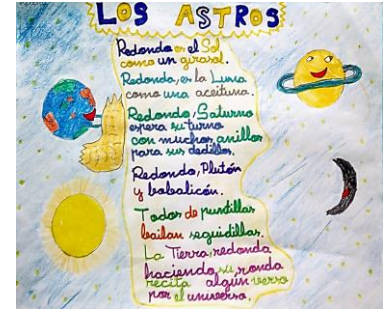 LOS ASTROS
Redondo es el Sol
como un girasol.
Redondo, es la Luna
como una aceituna.
Redondo, Saturno
espera su turno
con muchos anillos
para sus dedillos.
Redondo, Plutón
y bobalicón.
Todos de puntillas
bailan seguidillas.
La Tierra, redonda
haciendo su ronda
recita algún verso
por el universo.